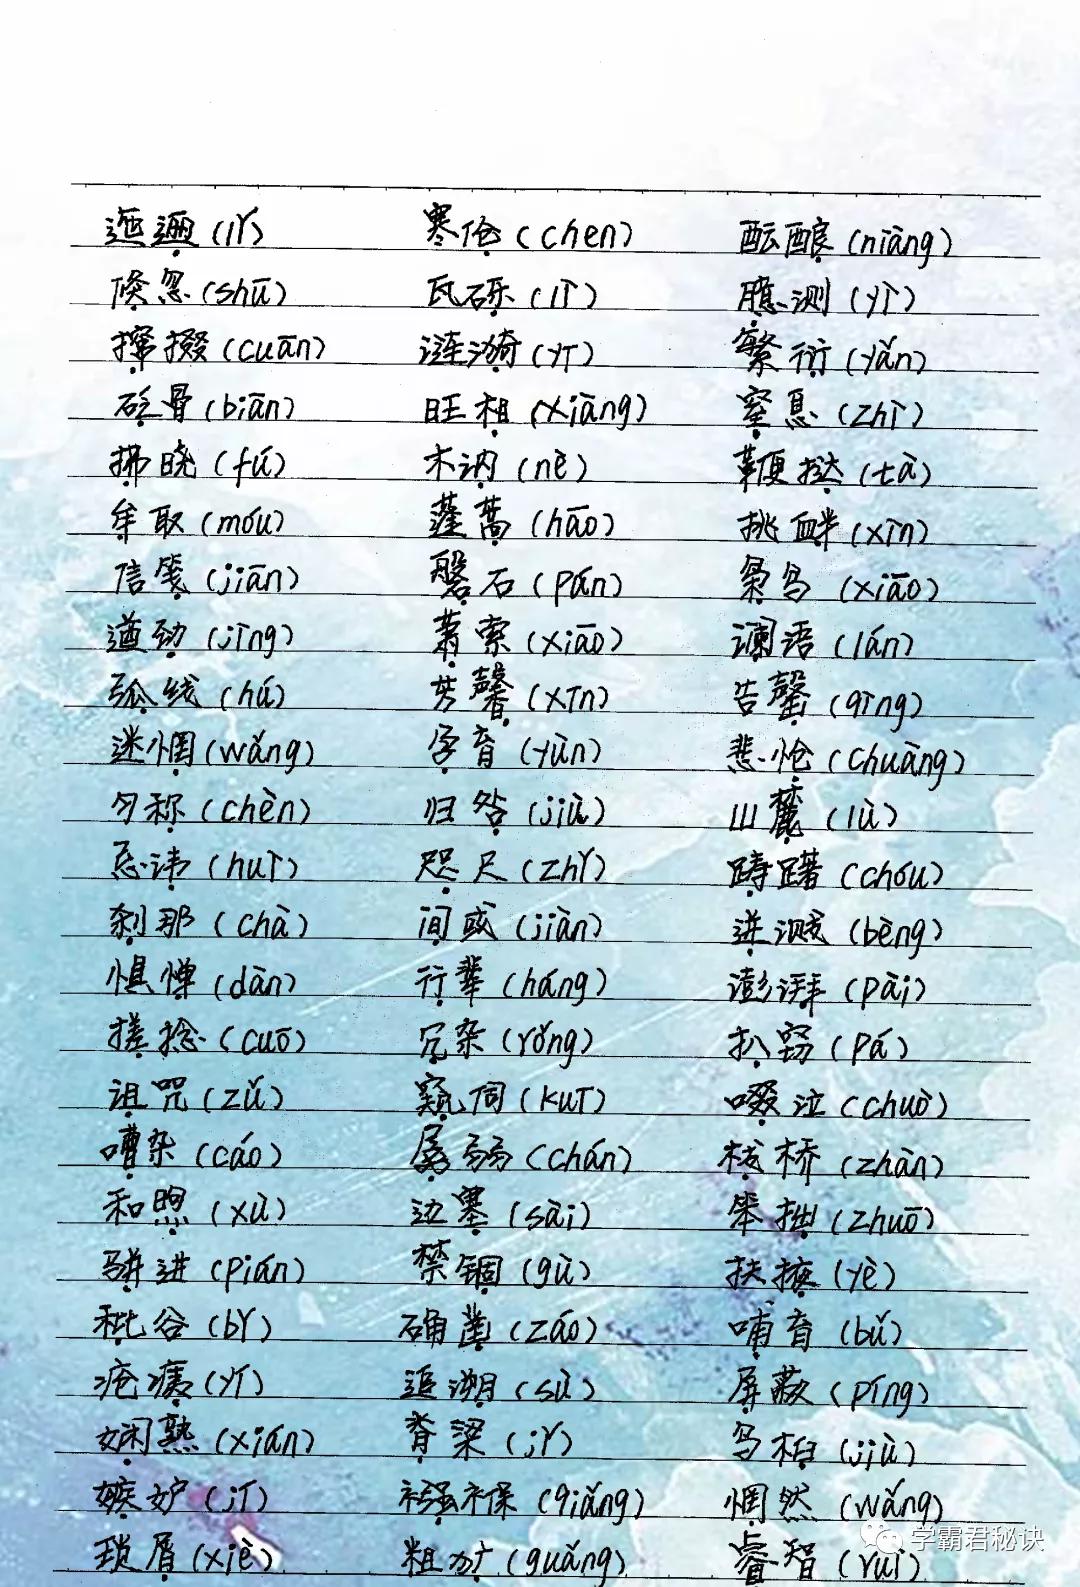 迤逦(lǐ) 寒伧(chen) 酝酿(niàng)
倏忽(shū) 瓦砾(lì) 臆测(yì)
撺掇(cuān) 涟漪(yī) 繁衍(yǎn)
砭骨(biān) 旺相(xiàng) 窒息(zhì)
拂晓(fú) 木讷(nè) 鞭挞(tà)
牟取(móu) 蓬蒿(hāo) 挑衅(xìn)
信笺(jiān) 磐石(pán) 枭鸟(xiāo)
遒劲(jìng) 萧索(xiāo) 谰语(lán)
弧线(hú) 芳馨(xīn) 告罄(qìng)
迷惘(wǎng) 孕育(yùn) 悲怆(chuàng)
匀称(chèn) 归咎(jiù) 山麓(lù)
忌讳(huì) 咫尺(zhǐ) 踌躇(chóu)
刹那(chà) 间或(jiàn) 迸溅(bèng)
惧惮(dàn) 行辈(háng) 澎湃(pài)
搓捻(cuō) 冗杂(rǒng) 扒窃(pá)
诅咒(zǔ) 窥伺(kuī) 啜泣(chuò)
嘈杂(cáo) 孱弱(chán) 栈桥(zhàn)
和煦(xù) 边塞(sài) 笨拙(zhuō)
骈进(pián) 禁锢(gù) 扶掖(yè)
秕谷(bǐ) 确凿(záo) 哺育(bǔ)
疮痍(yí) 追溯(sù) 屏蔽(píng)
娴熟(xián) 脊梁(jǐ) 乌桕(jiù)
嫉妒(jí) 襁褓(qiǎng) 惘然(wǎng)
琐屑(xiè) 粗犷(guǎng) 睿智(ruì)
学霸君秘诀